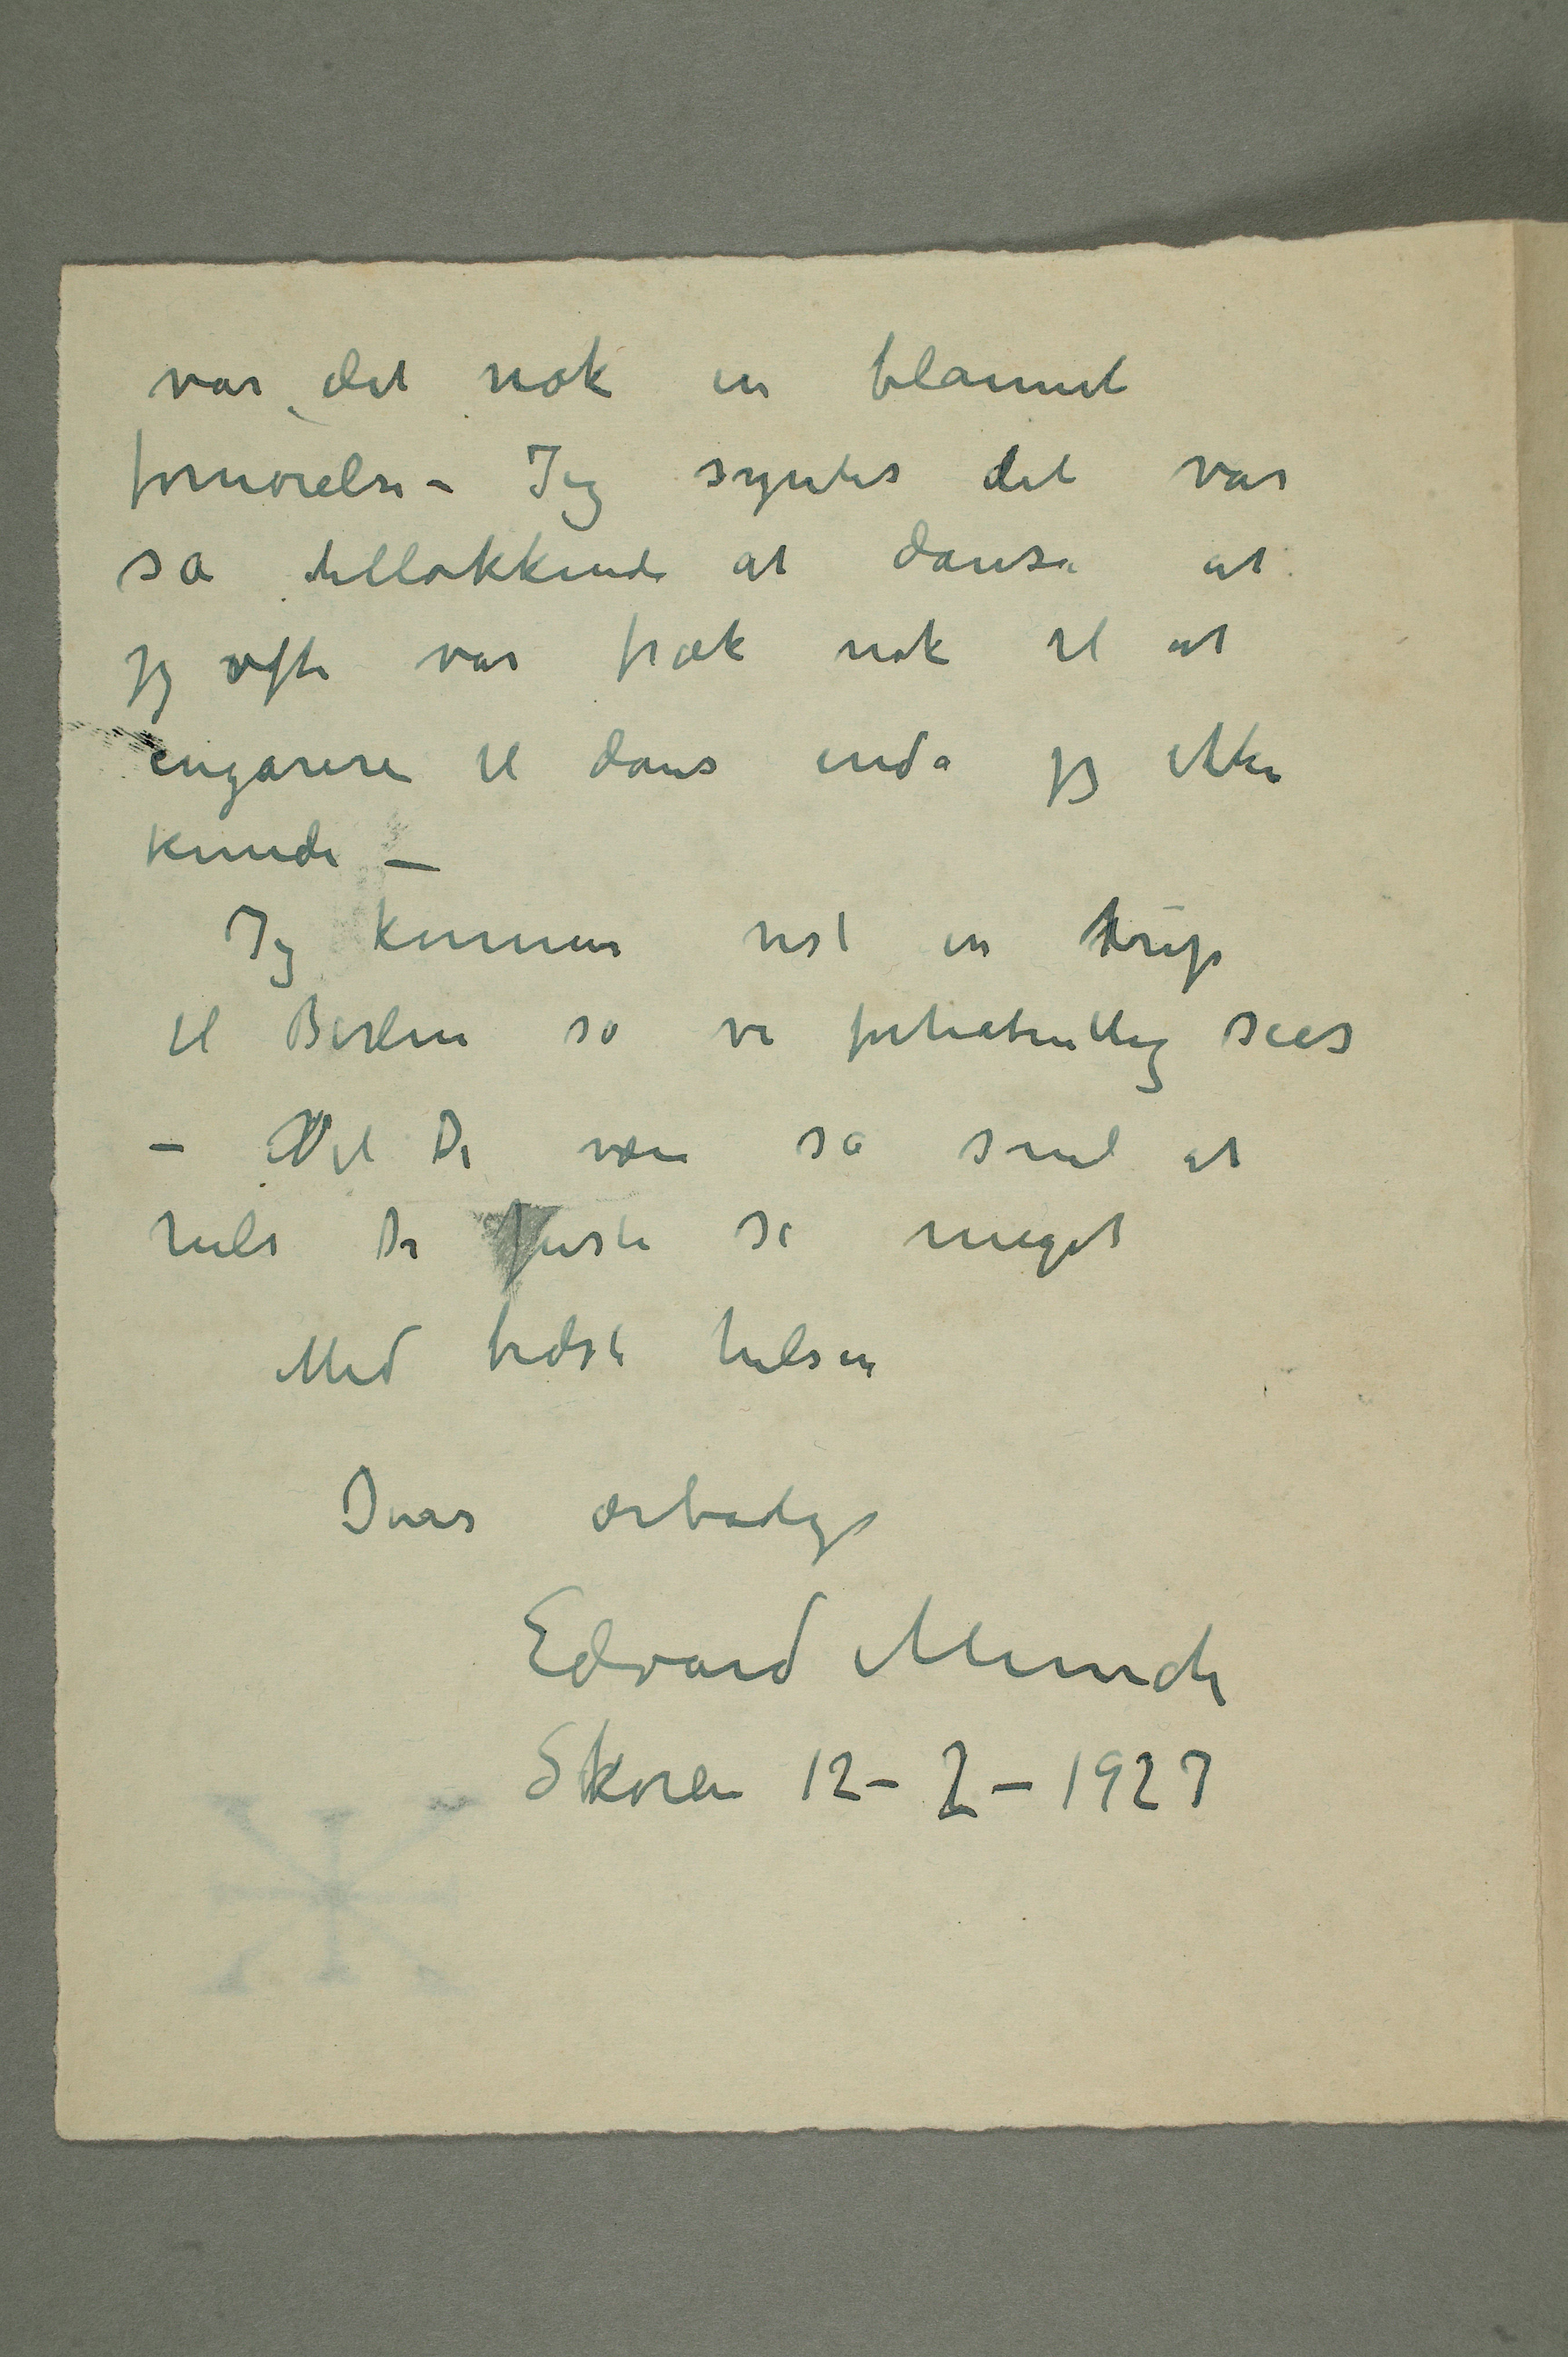 var det nok en blannet
fornøielse – Jeg syntes det var
så tillokkende at danse at
jeg ofte var fræk nok til at
engarere til dans enda jeg ikke
kunde –
Jeg kommer vist en trip
til Berlin så vi forhåbentlig sees
– Vil De være så snil at
hilse De første så meget
Med bedste hilsen
Deres ærbødige
Edvard Munch
Skøien 12 – 2 – 1927